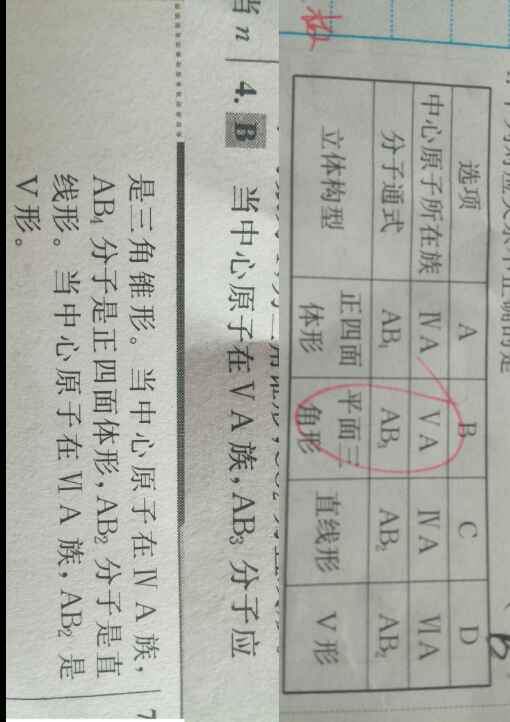 下列对应关系不正确的是
选项 A B C D
中心原子所在族 ⅣA ⅤA ⅣA ⅥA
分子通式 AB₄ AB₃ AB₂ AB₂
立体构型 正四面体形 平面三角形 直线形 V形
当 n
4. B 当中心原子在ⅤA族,AB₃分子应
是三角锥形。当中心原子在ⅣA族,
AB₄分子是正四面体形,AB₂分子是直
线形。当中心原子在ⅥA族,AB₂是
V形。